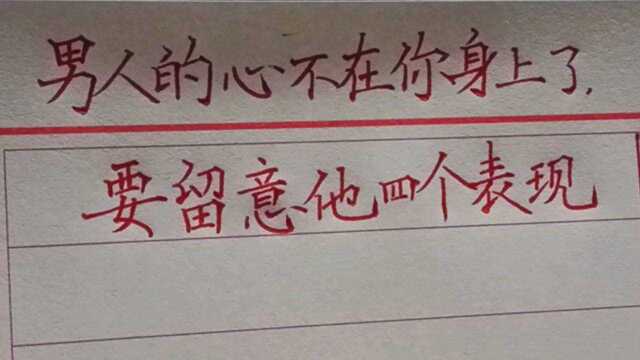 男人的心不在你身上了,
要留意他四个表现